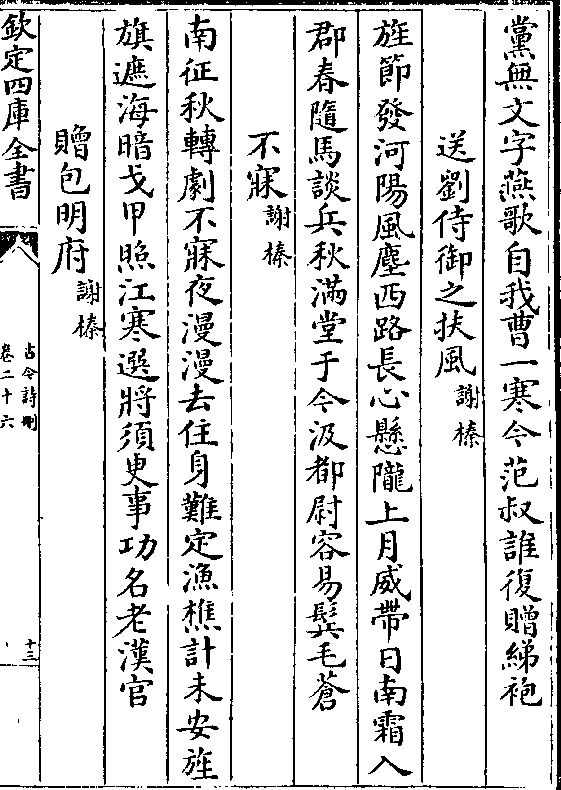 黨無文字燕歌自我曹一寒今范叔誰復贈綈袍
送劉侍御之扶風 謝榛
旌節發河陽風塵西路長心懸隴上月威帶日南霜入
郡春隨馬談兵秋滿堂于今汲都尉容易鬂毛蒼
不寐 謝榛
南征秋轉劇不寐夜漫漫去住身難定漁樵計未安旌
旗遮海暗戈甲照江寒選將須吏事功名老漢官
贈包明府 謝榛
欽定四庫全書
古今詩刪
卷二十六
十三